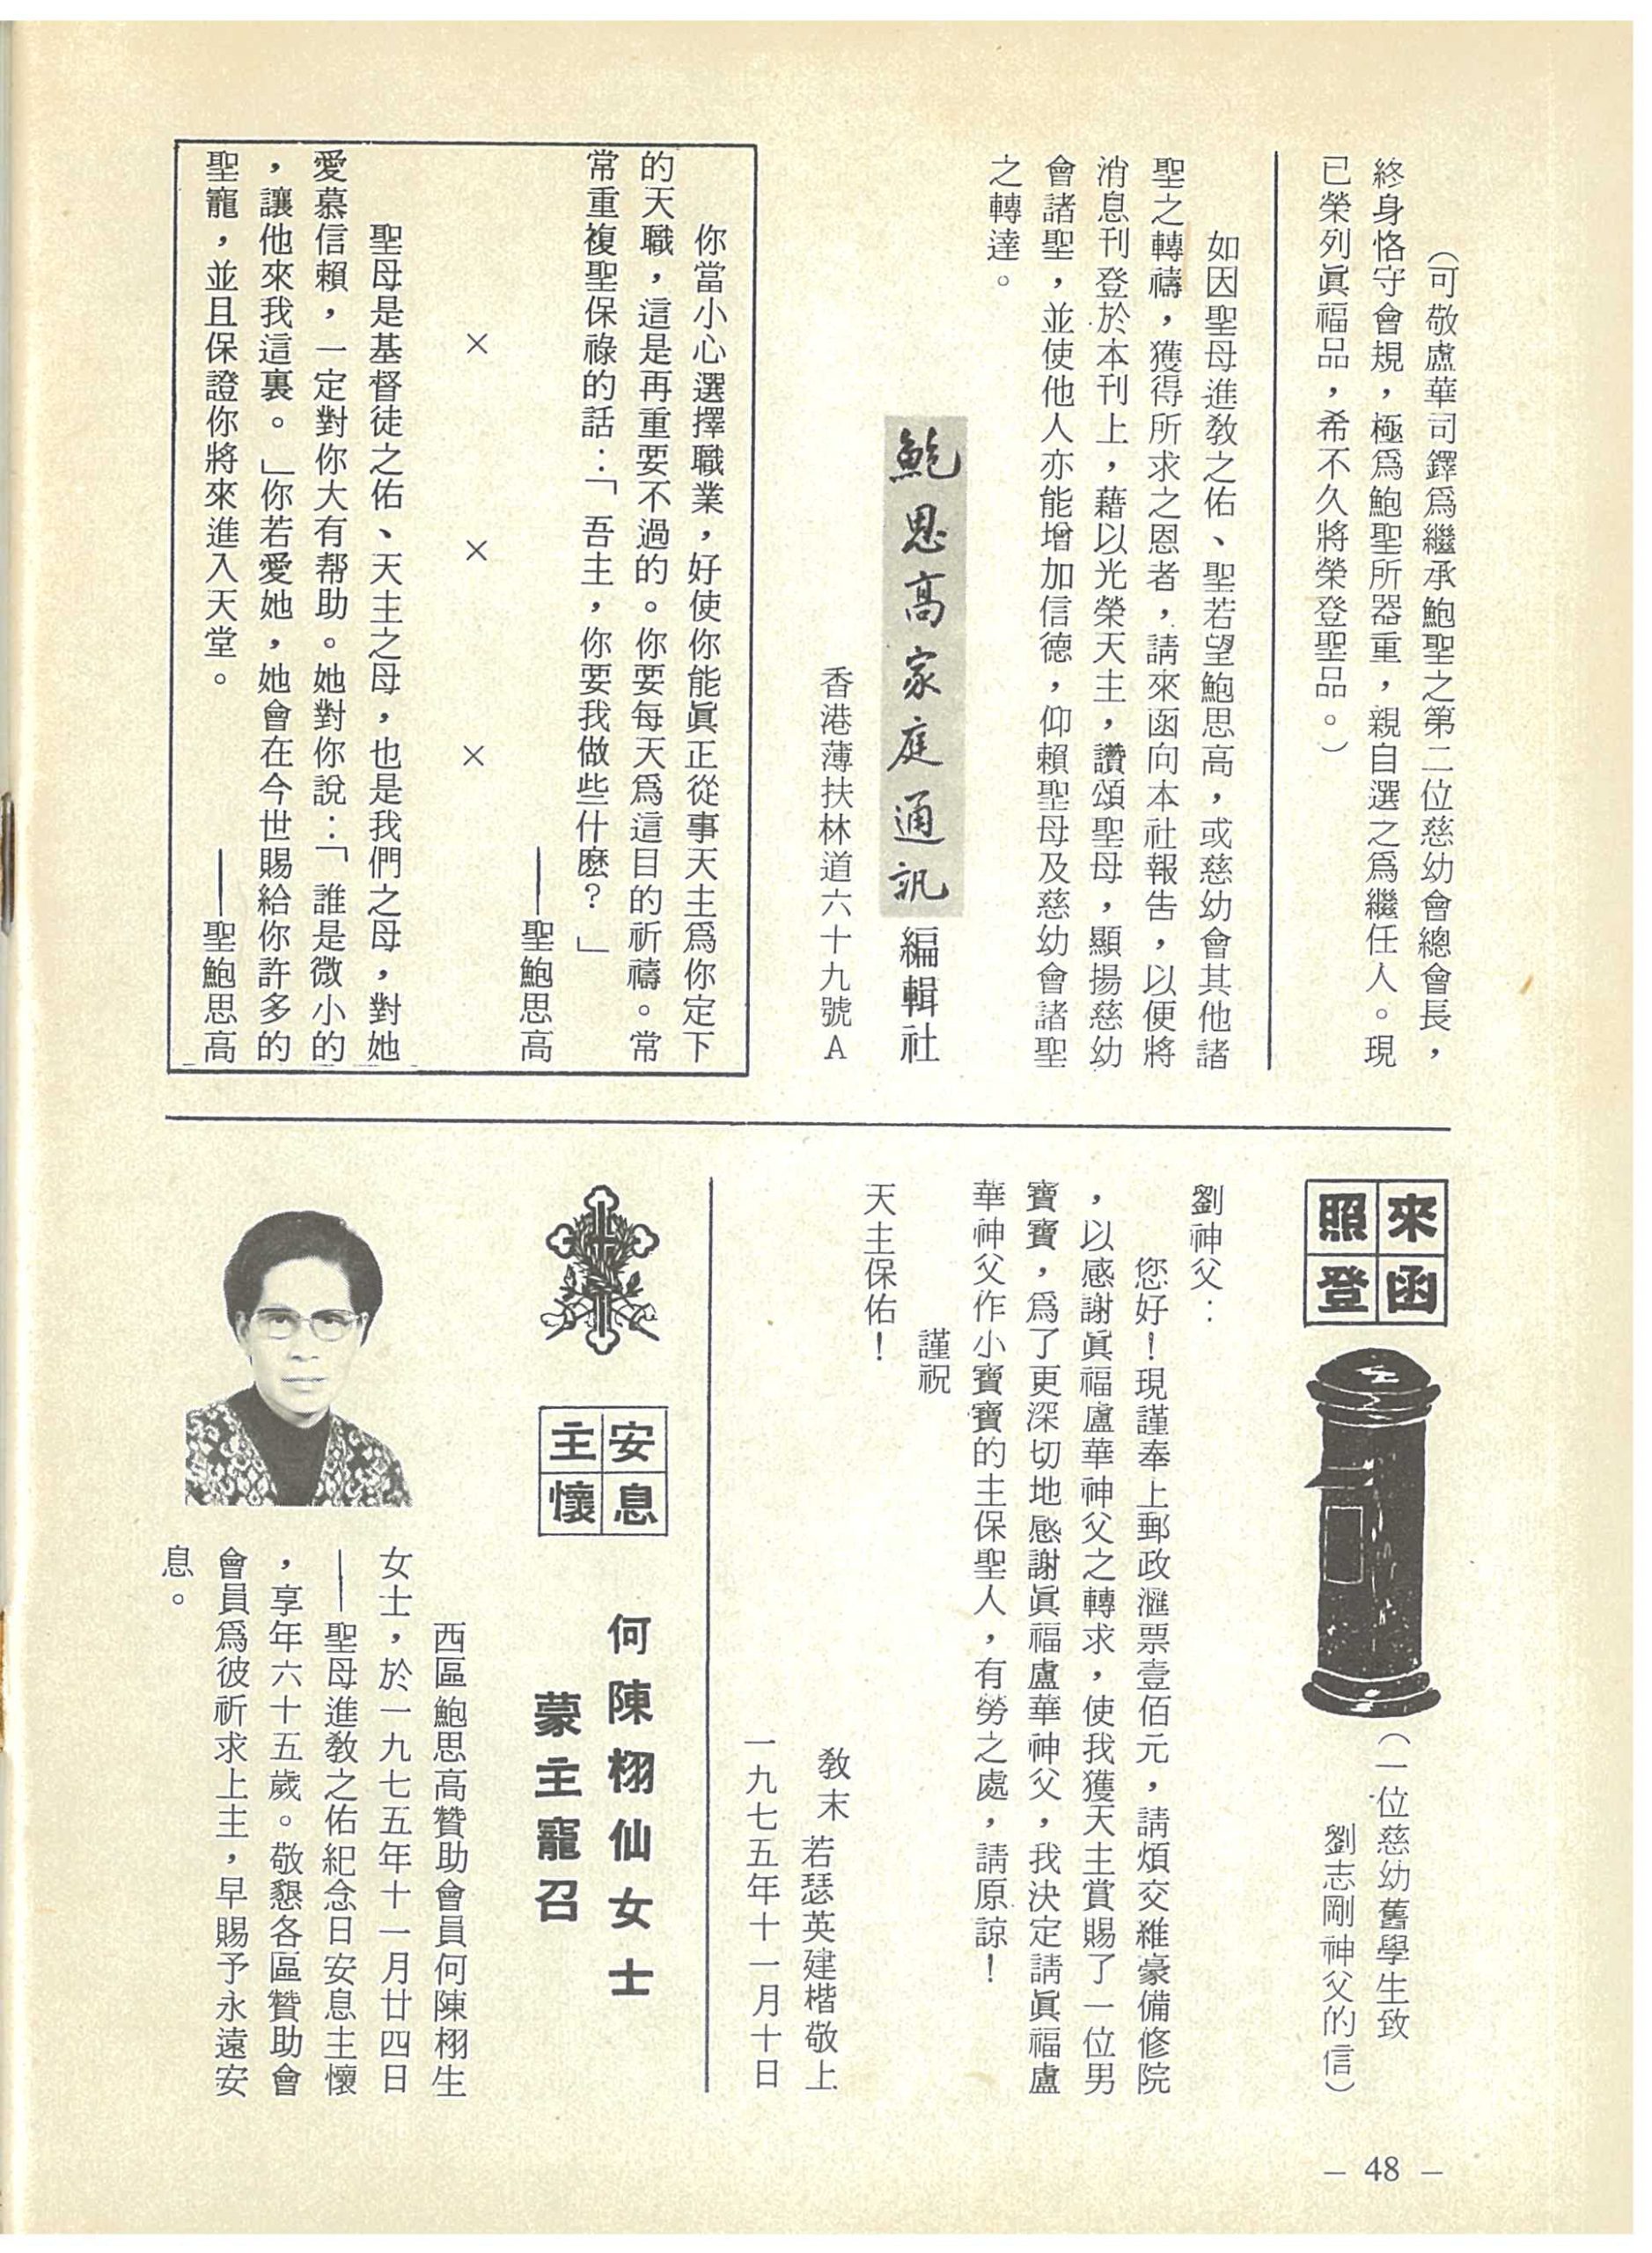 （可敬盧華司鐸爲繼承鮑聖之第二位慈幼會總會長，
終身恪守會規，極爲鮑聖所器重，親自選之爲繼任人。現
已榮列眞福品，希不久將榮登聖品。）
如因聖母進敎之佑、聖若望鮑思高，或慈幼會其他諸
聖之轉禱，獲得所求之恩者，請來函向本社報告，以便將
消息刊登於本刊上，藉以光榮天主，讚頌聖母，顯揚慈幼
會諸聖，並使他人亦能增加信德，仰賴聖母及慈幼會諸聖
之轉達。
鮑思高家庭通訊編輯社
香港薄扶林道六十九號A
你當小心選擇職業，好使你能眞正從事天主爲你定下
的天職，這是再重要不過的。你要每天爲這目的祈禱。常
常重複聖保祿的話：「吾主，你要我做些什麽？」
——聖鮑思高
× × ×
聖母是基督徒之佑、天主之母，也是我們之母，對她
愛慕信賴，一定對你大有帮助。她對你說：「誰是微小的
，讓他來我這裏。」你若愛她，她會在今世賜給你許多的
聖寵，並且保證你將來進入天堂。
——聖鮑思高
來函
照登
（一位慈幼舊學生致
劉志剛神父的信）
劉神父：
您好！現謹奉上郵政滙票壹佰元，請煩交維豪備修院
，以感謝眞福盧華神父之轉求，使我獲天主賞賜了一位男
寶寶，爲了更深切地感謝眞福盧華神父，我決定請眞福盧
華神父作小寶寶的主保聖人，有勞之處，請原諒！
謹祝
天主保佑！
敎末
若瑟英建楷敬上
一九七五年十一月十日
安息
主懷
何陳栩仙女士
蒙主寵召
西區鮑思高贊助會員何陳栩生
女士，於一九七五年十一月廿四日
——聖母進敎之佑紀念日安息主懷
，享年六十五歲。敬懇各區贊助會
會員爲彼祈求上主，早賜予永遠安
息。
— 48 —